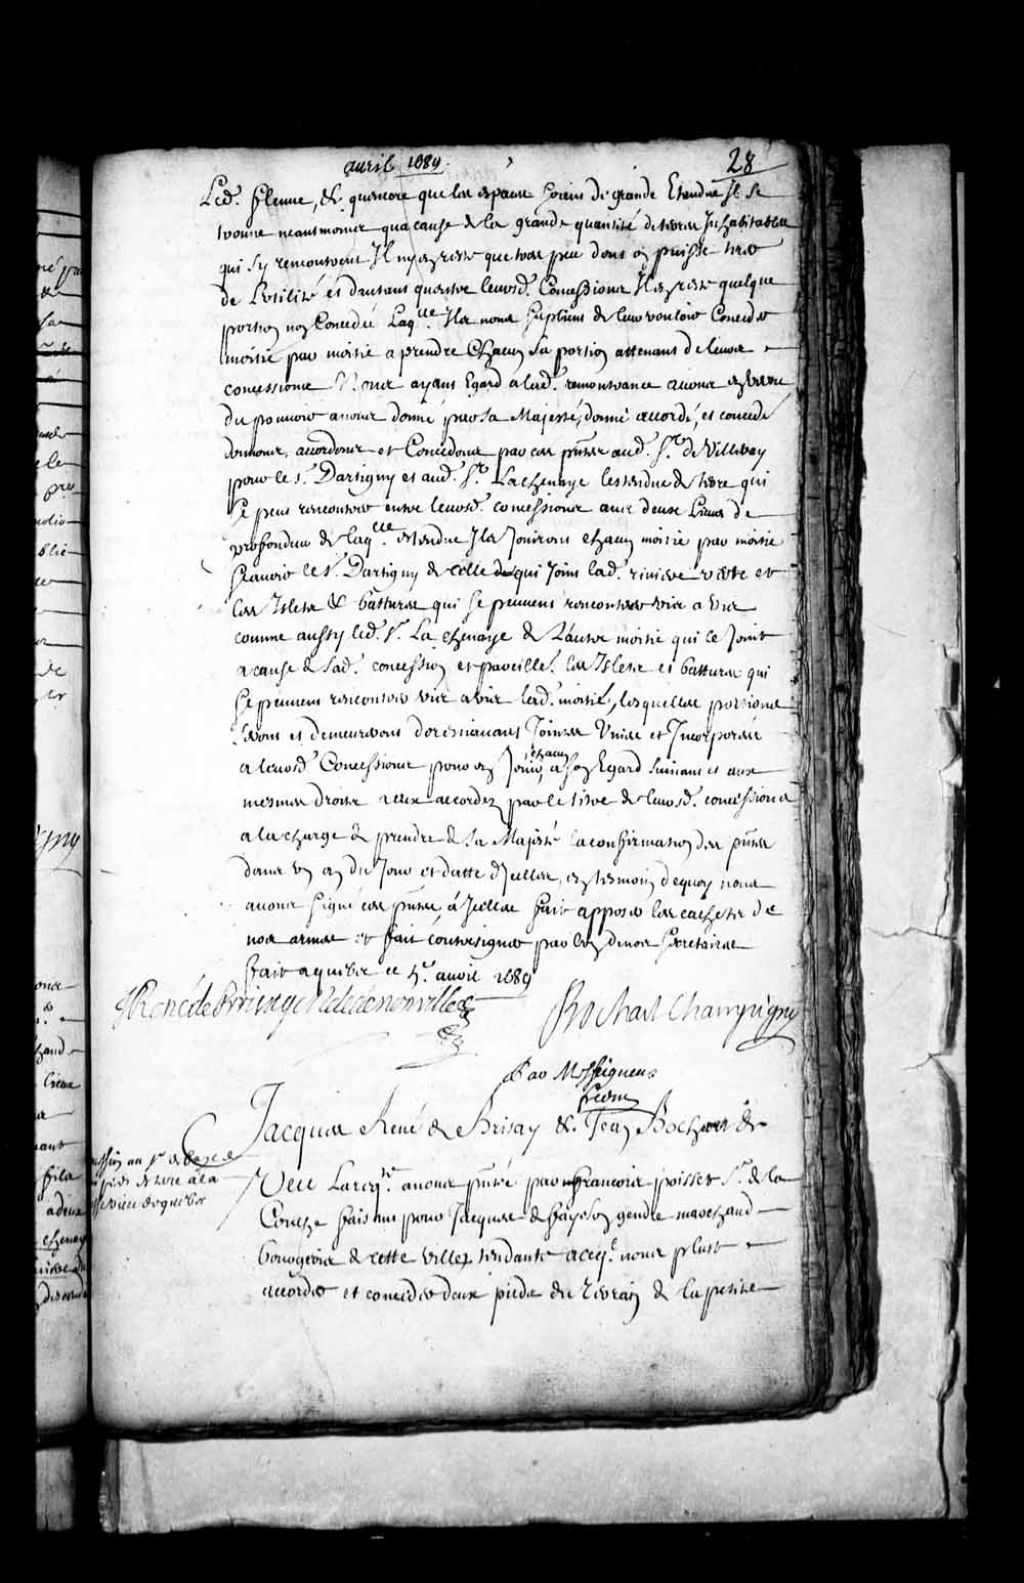 avril 1689.
28
Led. fleuve, & quencore que les espaces soient de grande Etendue Il se
trouve neantmoins qua cause de la grande quantité de terres Inhabitables
qui sy rencontrent Il ny en reste que tres peu dont on puisse tirer
de Lutilité et dautant quentre leursd. Concessions Il en reste quelque
portion non Concedée Laqlle. Ils nous suplient de leur vouloir Conceder
moitié par moitié a prendre Chacun sa portion attenant de leurs
concessions Nous ayans Egard à lad. remontrance avons en vertu
du pouvoir à nous donné par sa Majesté, donné accordé, et concedé
donnons, accordons et Concedons par ces pntes aud. Sr. de Villeray
pour le s. Dartigny et aud. Sr. Lachenaye lestendue de terre qui
se peut rencontrer entre leursd. concessions avec deux Lieues de
profondeur de laqlle. estendue Ils Jouiront chacun moitié par moitié
scavoir le S. Dartigny de celle qui Joint lad. riviere verte et
les Isles & batture qui se peuvent rencontrer vis a vis
comme aussy led. Sr. La chenaye de Lautre moitié qui le Joint
a cause de sad. concession et pareille. les Isles et batture qui
se peuvent rencontrer vis a vis lad. moitié, lesquelles portions
seront et demeureront doresnavant Jointes Unies et Incorporées
a leursd. Concessions pour en Jouir,
chacun
a son Egard suivant et aux
mesmes droits a eux accordez par le titre de leursd. concessions
a la charge de prendre de sa Majesté la confirmation des pntes
dans un an du Jour et datte dJcelles, en tesmoin dequoy nous
avons signé ces pntes à Jcelles fait apposer les cachets de
nos armes et fait contresigner par lun denos secretaires
fait a quebec ce 5e. avril 1689
J René de Brisay M de denonville
Bochart Champigny
Par Messeigneurs
Jacques René de Brisay &. Jean Bochart &
Veu Lareqte. a nous pntée par francois poisset Sr. de la
Conche faisant pour Jacques de faye son gendre marchand
bourgeois de cette ville, tendante aceq. nous plust
accorder et conceder deux pieds du terrain de la petite